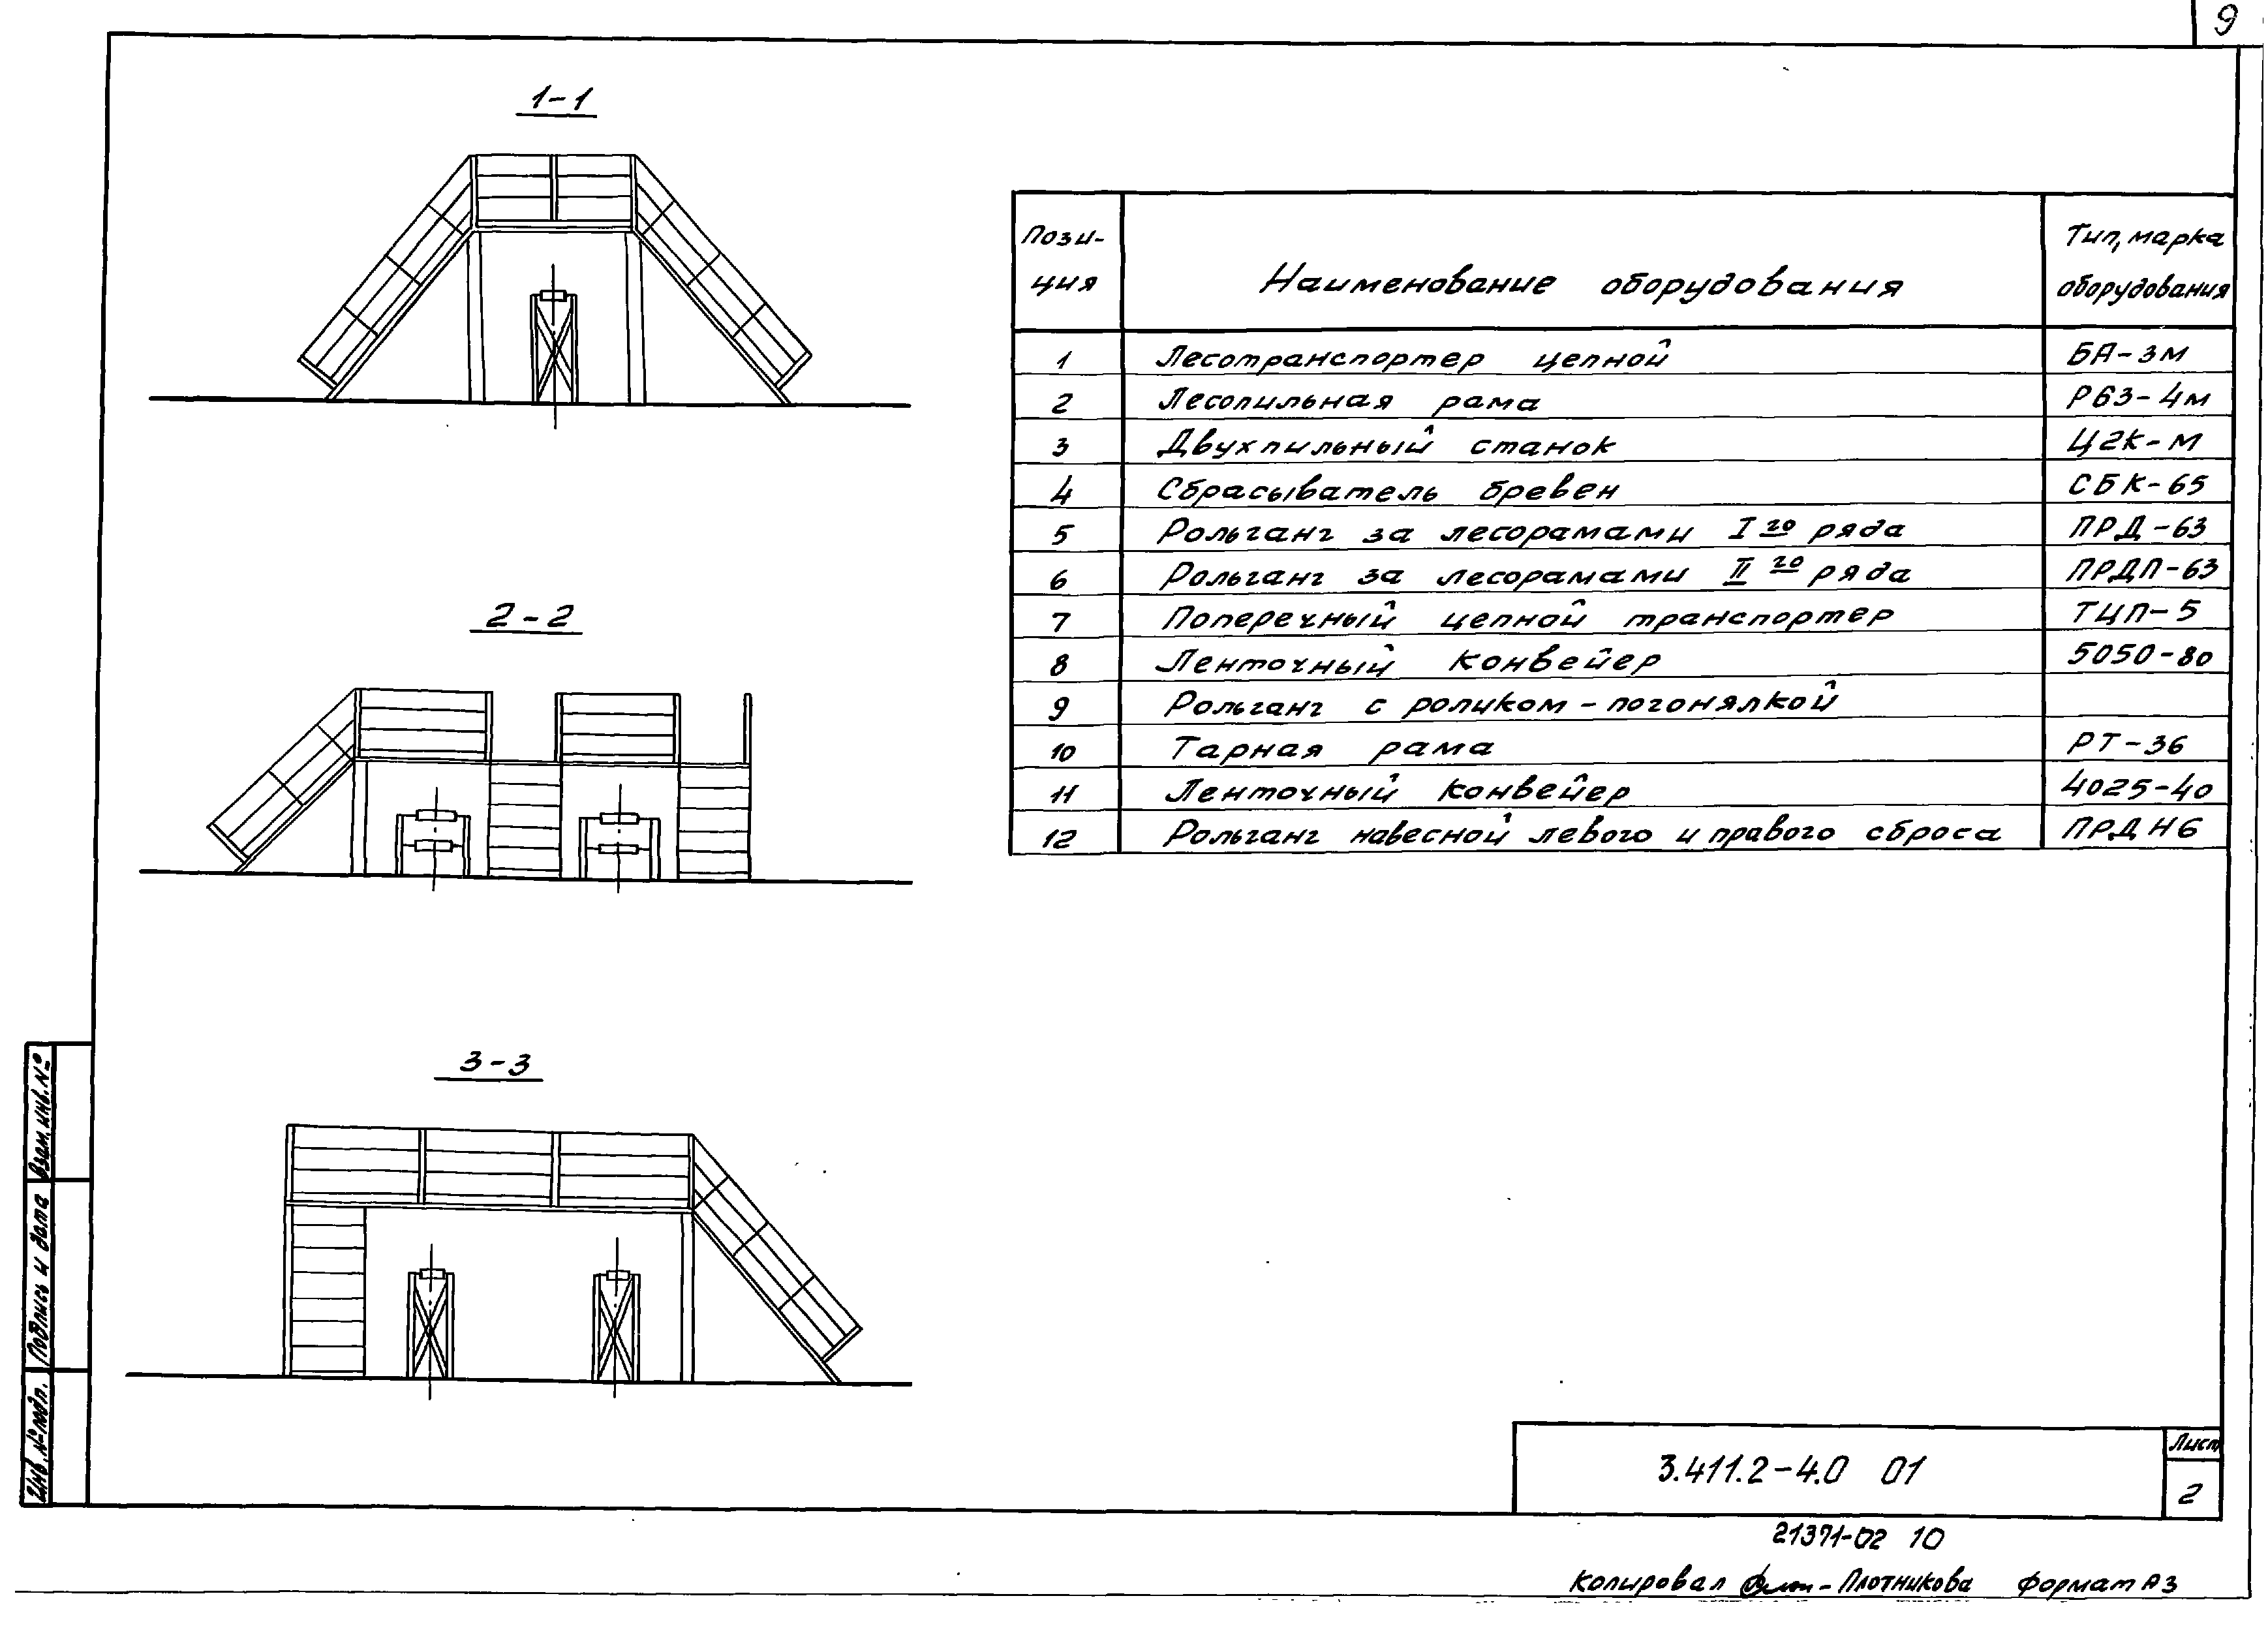 9
1-1
2-2
3-3
Пози-
ция
Наименование оборудования
Тип, марка
оборудования
1 Лесотранспортер цепной БА-3М
2 Лесопильная рама Р63-4М
3 Двухпильный станок Ц2К-М
4 Сбрасыватель бревен СБК-65
5 Рольганг за лесорамами I го ряда ПРД-63
6 Рольганг за лесорамами II го ряда ПРДП-63
7 Поперечный цепной транспортер ТЦП-5
8 Ленточный конвейер 5050-80
9 Рольганг с роликом-погонялкой
10 Тарная рама РТ-36
11 Ленточный конвейер 4025-40
12 Рольганг навесной левого и правого сброса ПРДН6
Взам. инв. №
Подпись и дата
Инв. № подл.
3.411.2-4.0 01
Лист
2
21371-02 10
Копировал Плотникова Формат А3